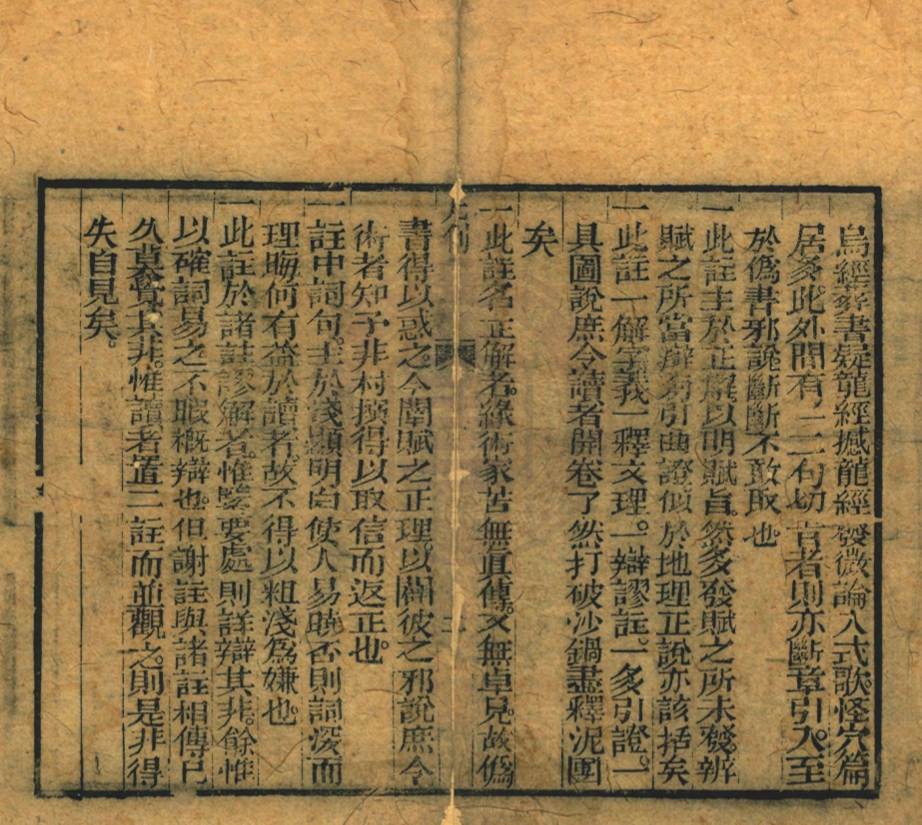 烏經葬書疑龍經撼龍經發微論入式歌怪穴篇
居多此外間有一二句切言者則亦斷章引入至
於僞書邪說斷斷不敢取也
一此註主於正解以明賦旨然多發賦之所未發辨
賦之所當辯旁引曲證但於地理正說亦該括矣
一此註一解字義一釋文理一辯謬註一多引證一
具圖說庶令讀者開卷了然打破沙鍋盡釋泥團
矣
一此註名正解者緣術家苦無眞傳又無卓見故僞
凡例
二
書得以惑之今闡賦之正理以闢彼之邪說庶令
術者知予非杜撰得以取信而返正也
一註中詞句主於淺顯明白使人易曉否則詞深而
理晦何有益於讀者故不得以粗淺爲嫌也
一此註於諸註謬解者惟緊要處則詳辯其非餘惟
以確詞易之不暇概辯也但謝註與諸註相傳已
久莫覺其非惟讀者置二註而並觀之則是非得
失自見矣